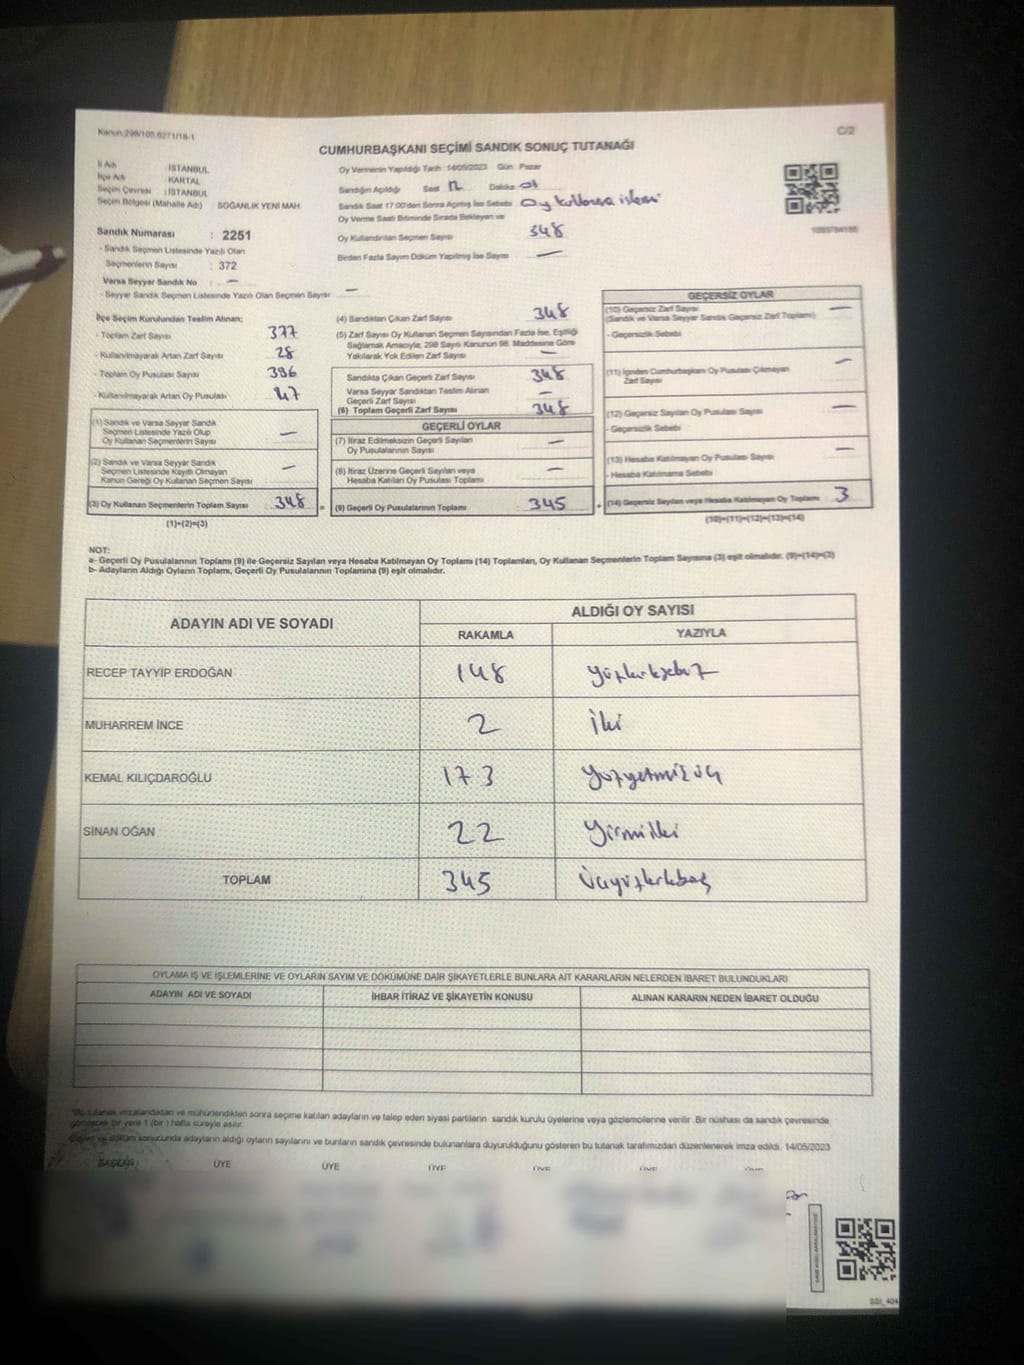 Kanun:298/105,6271/18-1
C/2
CUMHURBAŞKANI SEÇİMİ SANDIK SONUÇ TUTANAĞI
İl Adı : İSTANBUL
İlçe Adı : KARTAL
Seçim Çevresi : İSTANBUL
Seçim Bölgesi (Mahalle Adı) : SOĞANLIK YENİ MAH.
Sandık Numarası : 2251
- Sandık Seçmen Listesinde Yazılı Olan
Seçmenlerin Sayısı : 372
Varsa Seyyar Sandık No : —
- Seyyar Sandık Seçmen Listesinde Yazılı Olan Seçmen Sayısı —
Oy Vermenin Yapıldığı Tarih :14/05/2023 Gün : Pazar
Sandığın Açıldığı Saat Dakika 01
Sandık Saat 17.00'den Sonra Açılmış İse Sebebi Oy kullanma işlemi
Oy Verme Saati Bitiminde Sırada Bekleyen ve
Oy Kullandırılan Seçmen Sayısı 348
Birden Fazla Sayım Döküm Yapılmış İse Sayısı —
İlçe Seçim Kurulundan Teslim Alınan;
- Toplam Zarf Sayısı 377
- Kullanılmayarak Artan Zarf Sayısı 28
- Toplam Oy Pusulası Sayısı 396
- Kullanılmayarak Artan Oy Pusulası 47
(1) Sandık ve Varsa Seyyar Sandık
Seçmen Listesinde Yazılı Olup
Oy Kullanan Seçmenlerin Sayısı —
(2) Sandık ve Varsa Seyyar Sandık
Seçmen Listesinde Kayıtlı Olmayan
Kanun Gereği Oy Kullanan Seçmen Sayısı —
(3) Oy Kullanan Seçmenlerin Toplam Sayısı 348
(1)+(2)=(3)
(4) Sandıktan Çıkan Zarf Sayısı 348
(5) Zarf Sayısı Oy Kullanan Seçmen Sayısından Fazla İse, Eşitliği
Sağlamak Amacıyla; 298 Sayılı Kanunun 98. Maddesine Göre
Yakılarak Yok Edilen Zarf Sayısı —
Sandıkta Çıkan Geçerli Zarf Sayısı 348
Varsa Seyyar Sandıktan Teslim Alınan
Geçerli Zarf Sayısı —
(6) Toplam Geçerli Zarf Sayısı 348
GEÇERLİ OYLAR
(7) İtiraz Edilmeksizin Geçerli Sayılan
Oy Pusulalarının Sayısı —
(8) İtiraz Üzerine Geçerli Sayılan veya
Hesaba Katılan Oy Pusulası Toplamı —
(9) Geçerli Oy Pusulalarının Toplamı 345
GEÇERSİZ OYLAR
(10) Geçersiz Zarf Sayısı
(Sandık ve Varsa Seyyar Sandık Geçersiz Zarf Toplamı) —
- Geçersizlik Sebebi
(11) İçinden Cumhurbaşkanı Oy Pusulası Çıkmayan
Zarf Sayısı —
(12) Geçersiz Sayılan Oy Pusulası Sayısı —
- Geçersizlik Sebebi
(13) Hesaba Katılmayan Oy Pusulası Sayısı —
- Hesaba Katılmama Sebebi
(14) Geçersiz Sayılan veya Hesaba Katılmayan Oy Toplamı 3
(10)+(11)+(12)+(13)=(14)
NOT:
a- Geçerli Oy Pusulalarının Toplamı (9) ile Geçersiz Sayılan veya Hesaba Katılmayan Oy Toplamı (14) Toplamları, Oy Kullanan Seçmenlerin Toplam Sayısına (3) eşit olmalıdır. (9)+(14)=(3)
b- Adayların Aldığı Oyların Toplamı, Geçerli Oy Pusulalarının Toplamına (9) eşit olmalıdır.
ADAYIN ADI VE SOYADI
ALDIĞI OY SAYISI
RAKAMLA YAZIYLA
RECEP TAYYİP ERDOĞAN 148 yüzkırksekiz
MUHARREM İNCE 2 İki
KEMAL KILIÇDAROĞLU 173 yüzyetmişüç
SİNAN OĞAN 22 Yirmiiki
TOPLAM 345 Üçyüzkırkbeş
OYLAMA İŞ VE İŞLEMLERİNE VE OYLARIN SAYIM VE DÖKÜMÜNE DAİR ŞİKAYETLERLE BUNLARA AİT KARARLARIN NELERDEN İBARET BULUNDUKLARI
ADAYIN ADI VE SOYADI İHBAR İTİRAZ VE ŞİKAYETİN KONUSU ALINAN KARARIN NEDEN İBARET OLDUĞU
*Bu tutanak imzalandıktan ve mühürlendikten sonra seçime katılan adayların ve talep eden siyasi partilerin sandık kurulu üyelerine veya gözlemcilerine verilir. Bir nüshası da sandık çevresinde
görülecek bir yere 1 (bir) hafta süreyle asılır.
Sayım ve döküm sonucunda adayların aldığı oyların sayılarını ve bunların sandık çevresinde bulunanlara duyurulduğunu gösteren bu tutanak tarafımızdan düzenlenerek imza edildi. 14/05/2023
BAŞKAN ÜYE ÜYE ÜYE ÜYE ÜYE ÜYE